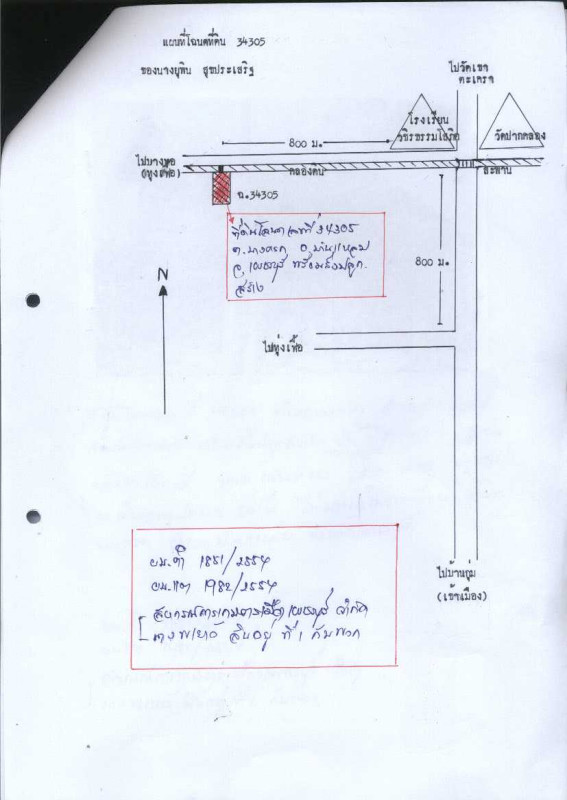 แผนที่โฉนดที่ดิน 34305
ของนางยุพิน สุขประเสริฐ
ไปวัดเขา
ตะเครา
โรงเรียน
วชิรธรรมโสภิต
วัดปากคลอง
800 ม.
ไปบางหอ
(ทุ่งเฟื้อ)
คลองดิน
สะพาน
ฉ.34305
ที่ดินโฉนดเลขที่ 34305
ต.บางครก อ.บ้านแหลม
จ.เพชรบุรี พร้อมสิ่งปลูก
สร้าง
800 ม.
N
ไปทุ่งเฟื้อ
ไปบ้านกุ่ม
(เข้าเมือง)
ผบ.ดำ 1851/2554
ผบ.แดง 1982/2554
สหกรณ์การเกษตรเมืองเพชรบุรี จำกัด
นาง สินอยู่ ที่ 1 กับพวก